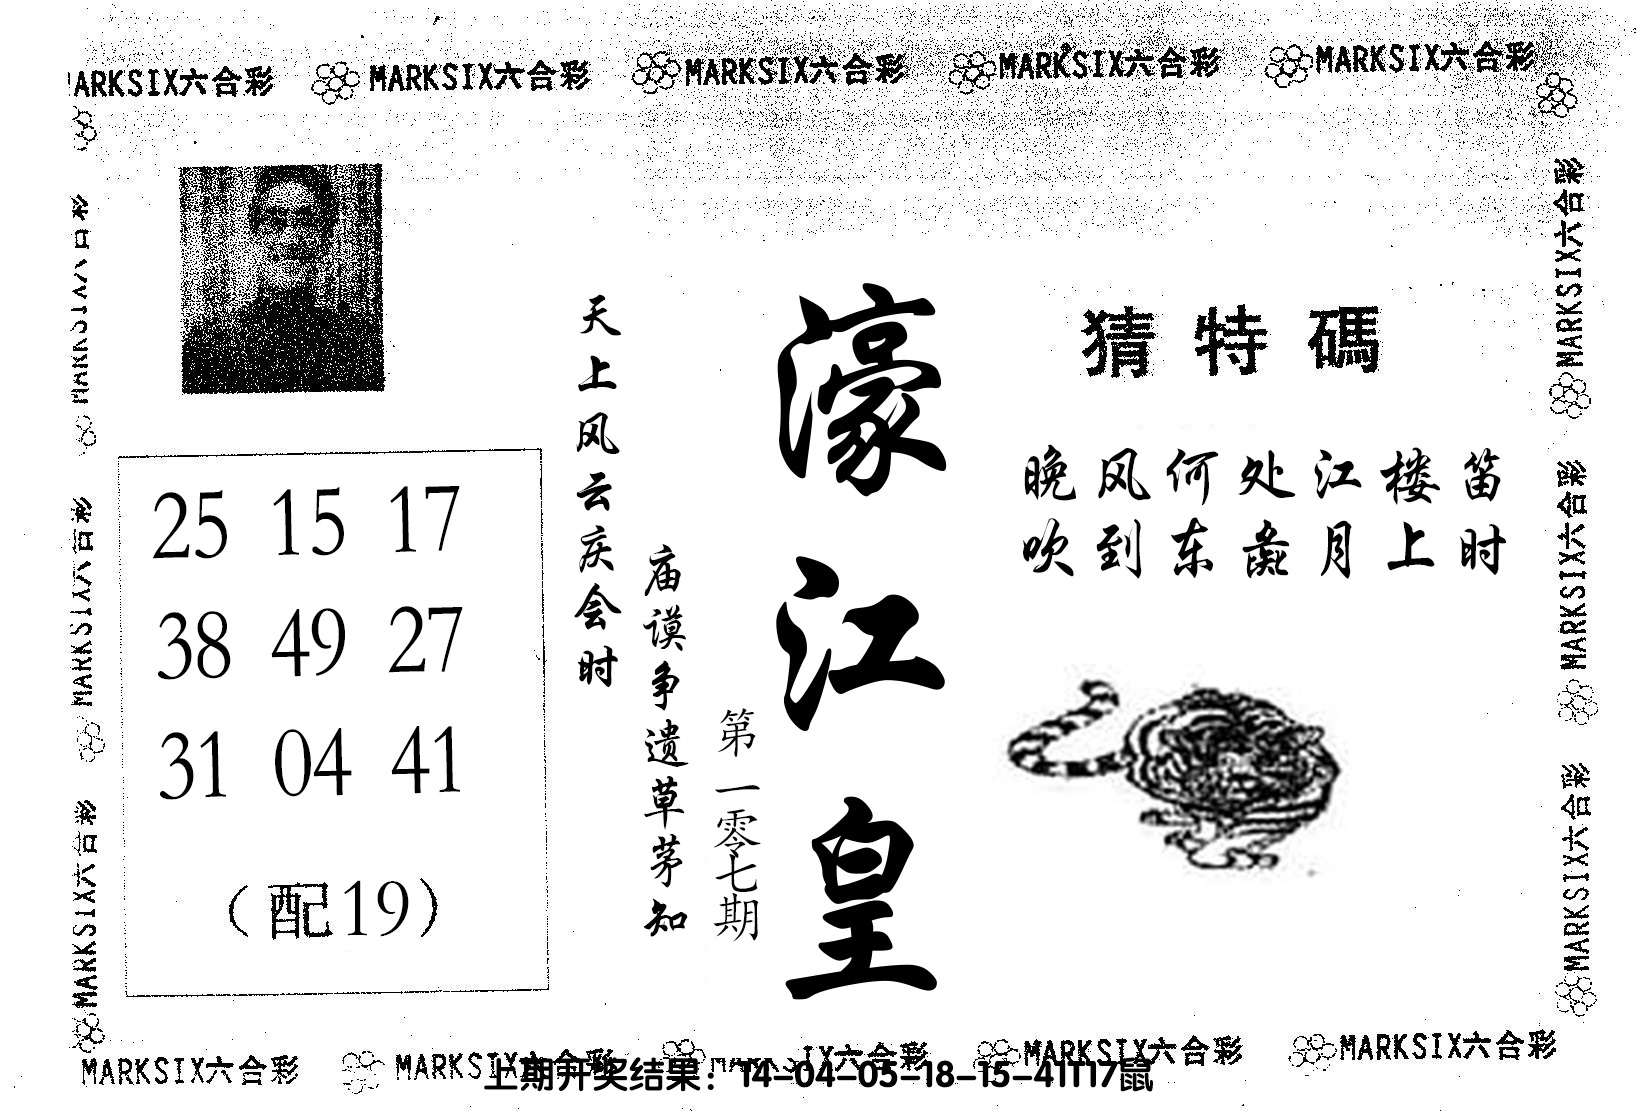 MARKSIX六合彩 MARKSIX六合彩 MARKSIX六合彩 MARKSIX六合彩
猜特碼
晚风何处江楼笛
吹到东彝月上时
濠江皇
第一零七期
天上风云庆会时
庙谟争遗草茅知
25 15 17
38 49 27
31 04 41
（配19）
MARKSIX六合彩
MARKSIX六合彩
MARKSIX六合彩
MARKSIX六合彩
MARKSIX六合彩
MARKSIX六合彩 MARKSIX六合彩 MARKSIX六合彩 MARKSIX六合彩
上期开奖结果：14-04-05-18-15-41T17鼠